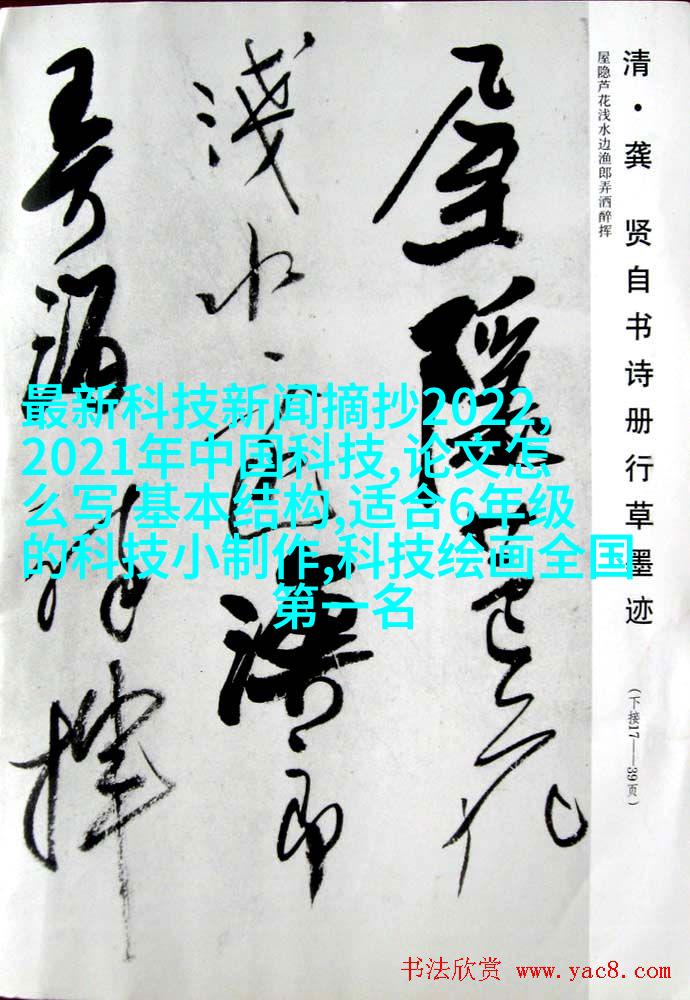 清·龚 贤自书诗册行草墨迹
(下接17——39页)
屋隐芦花浅水边渔郎弄洒醉挥
屋隱蘆花
淺水邊漁郎
弄酒醉揮
最新科技新闻摘抄2022,
2021年中国科技,论文怎
么写 基本结构,适合6年级
的科技小制作,科技绘画全国
第一名
书法欣赏 www.yac8.com